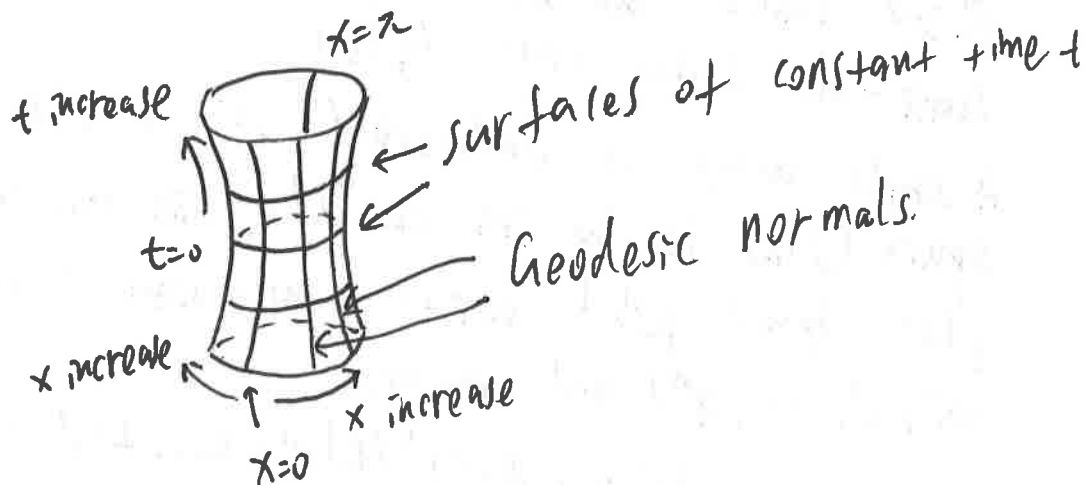 x=π
t increase
surfaces of constant time t
t=0
Geodesic normals.
x increase
x increase
x=0